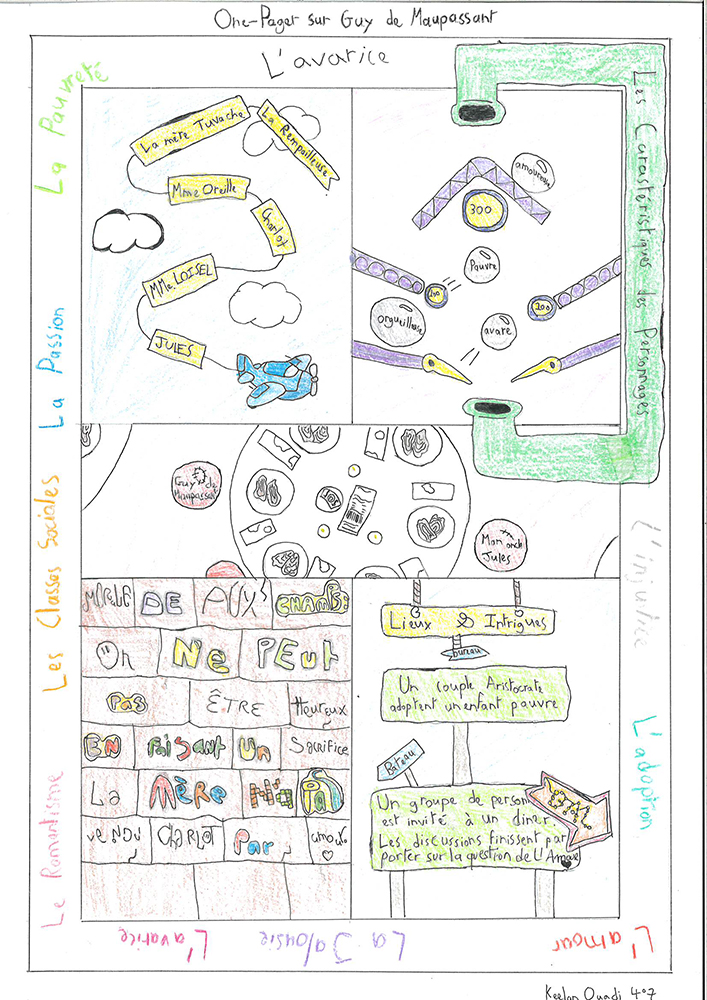 One-Pager sur Guy de Maupassant
L'avarice
La Pauvreté
La Passion
Les Classes Sociales
Le Romantisme
La Rempailleuse
La mère Tuvache
Mme Oreille
Charlot
MMe LOISEL
JULES
Les Caractéristiques des Personages
amoureuse
300
Pauvre
100
100
orgueilleuse
avare
Guy de
Maupassant
Mon oncle
Jules
MORALE DE AUX CHAMPS:
On Ne PEUt
Pas ÊTRE Heureux
EN FAiSANT Un Sacrifice
La MÈRE N'a PAS
VENDU CHARLOT Par amour
Lieux & Intrigues
bureau
Un couple Aristocrate
adoptent un enfant pauvre
Bateau
Un groupe de person
est invité à un diner.
Les discussions finissent par
porter sur la question de L'Amour
L'injutice
L'adoption
L'avarice
La Jalousie
L'amour
Keelan Ouadi 407